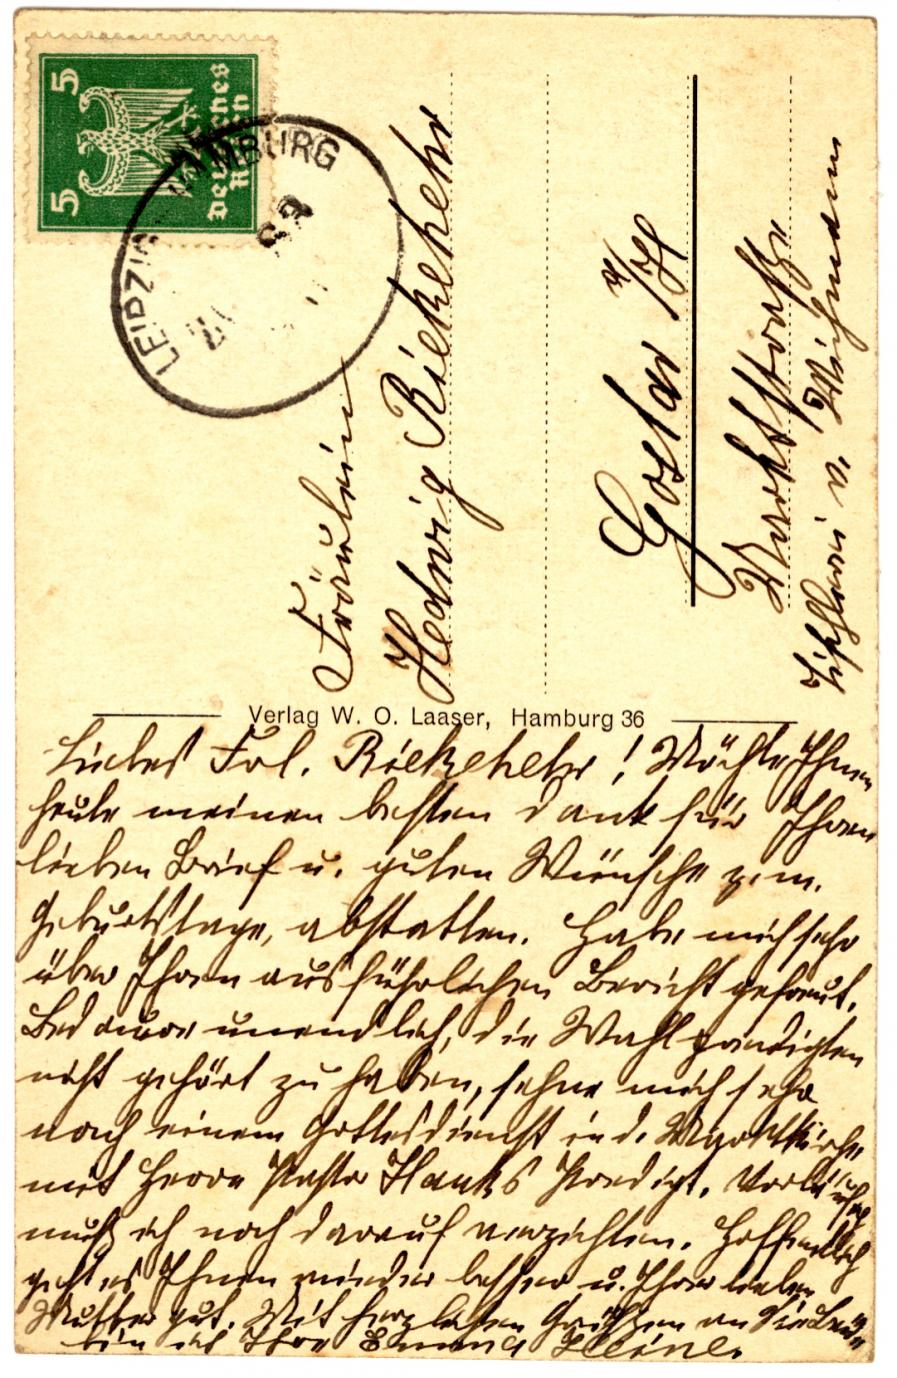 5 Deutsches Reich 5
LEIPZIG HAMBURG
Fräulein
Hedwig Riekehehr
Goslar a/H
Marktstraße
Tischlerei v. Wichmann
Verlag W. O. Laaser, Hamburg 36
Liebes Frl. Riekehehr! Möchte Ihnen
heute meinen besten Dank für Ihren
lieben Brief u. guten Wünsche z. m.
Geburtstage, abstatten. Habe mich sehr
über Ihren ausführlichen Bericht gefreut.
Bedaure unendlich, die Wahlpredigten
nicht gehört zu haben, sehne mich sehr
nach einem Gottesdienst in d. Marktkirche
mit Herrn Pastor Predigt. Vorläufig
muß ich noch darauf verzichten. Hoffentlich
geht es Ihnen wieder besser u. Ihrer lieben
Mutter gut. Mit herzlichen Grüßen an Sie Beide
bin ich Ihre Emma Heine.